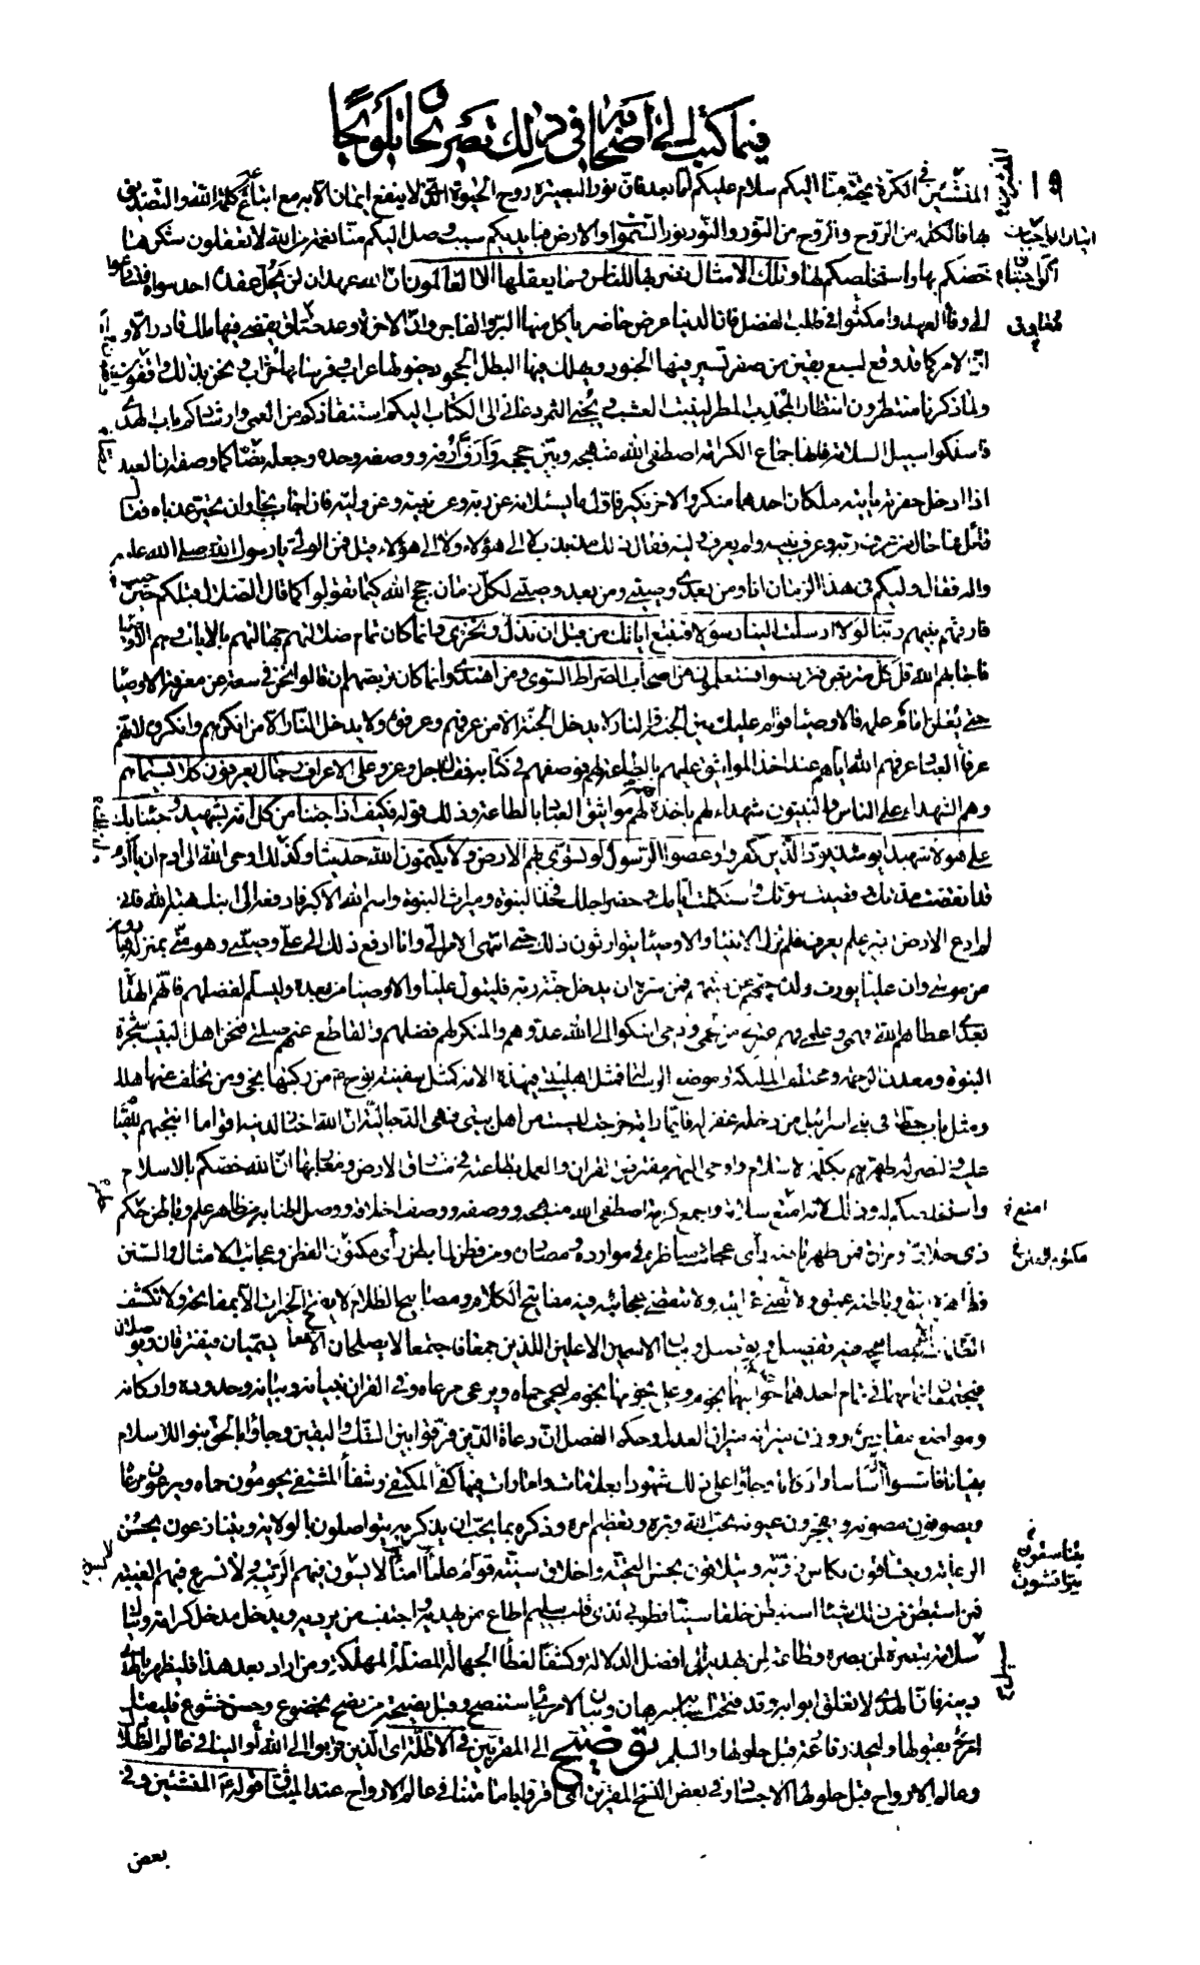 فيما كتب ع الى اصحابه في ذلك تصريحا وتلويحا
المنشئين في الكرة منا اليكم سلام عليكم اما بعد فان نور البصيرة روح الحيوة الذي لا ينفع ايمان الا به مع اتباع كلمة الله والتصديق
بها فالكلمة من الروح والروح من النور والنور نور السموات والارض فبايديكم سبب وصل اليكم منا نعمة من الله لا تعقلون شكرها
خصكم بها واستخلصكم لها وتلك الامثال نضربها للناس وما يعقلها الا العالمون ان الله عهد ان لن يحل عقده احد سواه فتسارعوا
الى وفاء العهد وامكثوا في طلب الفضل فان الدنيا عرض حاضر ياكل منها البر والفاجر وان الاخرة وعد صادق يقضي فيها ملك قادر الا و
ان الامر كما قد وقع لسبع بقين من صفر تسير فيها الجنود ويهلك فيها البطل الجحود خيولها عراب وفرسانها حراب ونحن بذلك واقفون
ولما ذكرنا منتظرون انتظار المجدب المطر لينبت العشب ويجني الثمر دعاني الى الكتاب اليكم استنقاذكم من العمى وارشادكم باب الهدى
فاسلكوا سبيل السلامة فانها جماع الكرامة اصطفى الله منهجه وبين حججه وارف ارفه ووصفه وحده وجعله نصا كما وصفه ان العبد
اذا ادخل حفرته ياتيه ملكان احدهما منكر والاخر نكير فاول ما يسئلانه عن ربه وعن نبيه وعن وليه فان اجاب نجا وان تحير عذباه فقال
قائل فما حال من عرف ربه وعرف نبيه ولم يعرف وليه فقال ذلك مذبذب لا الى هؤلاء ولا الى هؤلاء قيل فمن الولي يا رسول الله صلى الله عليه
واله فقال وليكم في هذا الزمان انا ومن بعدي وصيي ومن بعد وصيي لكل زمان حجج الله كيما تقولوا كما قال الضلال قبلكم حين
فارقهم نبيهم ربنا لولا ارسلت الينا رسولا فنتبع اياتك من قبل ان نذل ونخزى وانما كان تمام ضلالتهم جهالتهم بالايات وهم الاوصياء
فاجابهم الله قل كل متربص فتربصوا فستعلمون من اصحاب الصراط السوي ومن اهتدى وانما كان تربصهم ان قالوا نحن في سعة عن معرفة الاوصياء
حتى يعلن امام علمه فالاوصياء قوام عليكم بين الجنة والنار لا يدخل الجنة الا من عرفهم وعرفوه ولا يدخل النار الا من انكرهم وانكروه لانهم
عرفاء العباد عرفهم الله اياهم عند اخذ المواثيق عليهم بالطاعة لهم فوصفهم في كتابه فقال جل وعز وعلى الاعراف رجال يعرفون كلا بسيماهم
وهم الشهداء على الناس والنبيون شهداء لهم باخذه لهم مواثيق العباد بالطاعة وذلك قوله فكيف اذا جئنا من كل امة بشهيد وجئنا بك
على هؤلاء شهيدا يومئذ يود الذين كفروا وعصوا الرسول لو تسوى بهم الارض ولا يكتمون الله حديثا وكذلك اوحى الله الى ادم ان يا ادم
قد انقضت مدتك وقضيت نبوتك واستكملت ايامك وحضر اجلك فخذ النبوة وميراث النبوة واسم الله الاكبر فادفعه الى ابنك هبة الله فاني
لم ادع الارض بغير علم يعرف فلم تزل الانبياء والاوصياء يتوارثون ذلك حتى انتهى الامر الي وانا ادفع ذلك الى علي وصيي وهو مني بمنزلة هرون
من موسى وان عليا يورث ولده حيهم عن ميتهم فمن سره ان يدخل جنة ربه فليتول عليا والاوصياء من بعده وليسلم لفضلهم فانهم الهداة
بعدي اعطاهم الله فهمي وعلمي فهم عترتي من لحمي ودمي اشكو الى الله عدوهم والمنكر لهم فضلهم والقاطع عنهم صلتي فنحن اهل البيت شجرة
النبوة ومعدن الرحمة ومختلف الملائكة وموضع الرسالة فمثل اهل بيتي في هذه الامة كمثل سفينة نوح من ركبها نجى ومن تخلف عنها هلك
ومثل باب حطة في بني اسرائيل من دخله غفر له فايما راية خرجت ليست من اهل بيتي فهي الدجالية ان الله اختار لدينه اقواما انتجبهم للقيام
عليه والنصر له طهرهم بكلمة الاسلام واوحى اليهم مفترض القران والعمل بطاعته في مشارق الارض ومغاربها ان الله خصكم بالاسلام
واستخلصكم له وذلك لانه امتع سلامة واجمع كرامة اصطفى الله منهجه ووصفه ووصف اخلاقه ووصل اطنابه من ظاهر علم وباطن حكم
ذي حلاوة ومرارة فمن طهر باطنه راى عجائب مناظره في موارده ومصادره ومن فطن لما بطن راى مكنون الفطن وعجائب الامثال والسنن
فظاهره انيق وباطنه عميق ولا تفنى غرائبه ولا تنقضي عجائبه فيه مفاتيح الكلام ومصابيح الظلام لا يفتح الخيرات الا بمفاتحه ولا تكشف
الظلمات الا بمصابيحه فيه تفصيل وتوصيل وبيان الاسمين الاعلين اللذين جمعا فاجتمعا لا يصلحان الا معا يسميان فيفترقان ويوصلان
فيجتمعان تمامهما في تمام احدهما حواليهما نجوم وعلى نجومها نجوم ليحمي حماه ويرعى مرعاه وفي القران تبيانه وبيانه وحدوده واركانه
ومواضع مقاديره ووزن ميزانه ميزان العدل وحكم الفصل ان دعاة الدين فرقوا بين الشك واليقين وجاؤا بالحق بنوا للاسلام
بنيانا فاسسوا له اساسا واركانا وجاؤا على ذلك شهودا بعلامات وامارات فيها كفي المكتفي وشفاء المشتفي يحومون حماه ويرعون مرعاه
ويصونون مصونه ويفجرون عيونه بحب الله وبره وتعظيم امره وذكره بما يحب ان يذكر به يتواصلون بالولاية ويتنازعون بحسن
الرعاية ويتساقون بكاس روية ويتلاقون بحسن التحية واخلاق سنية قوام علماء امناء لا يسوق فيهم الريبة ولا تشرع فيهم الغيبة
فمن استبطن من ذلك شيئا استبطن خلقا سنيا فطوبى لذي قلب سليم اطاع من يهديه واجتنب من يرديه ويدخل مدخل كرامة وينال
سلامة تبصرة لمن بصره وطاعة لمن يهديه الى افضل الدلالة وكشف غطاء الجهالة المضلة المهلكة ومن اراد بعد هذا فليظهر بالهدى
دينه فان الهدى لا تغلق ابوابه وقد فتحت اسبابه ببرهان وبيان لامرئ استنصح وقبل نصيحة من نصح بخضوع وحسن خشوع فليقبل
امرؤ بقبولها وليحذر قارعة قبل حلولها والسلم توضيح الى المقربين في الاظلة اي الذين قربوا الى الله او الينا في عالم الظلال
وعالم الارواح قبل حلولها الاجساد وفي بعض النسخ المقرين اي اقروا بامامتنا في عالم الارواح عند الميثاق قوله ع المنشئين وفي
بعض